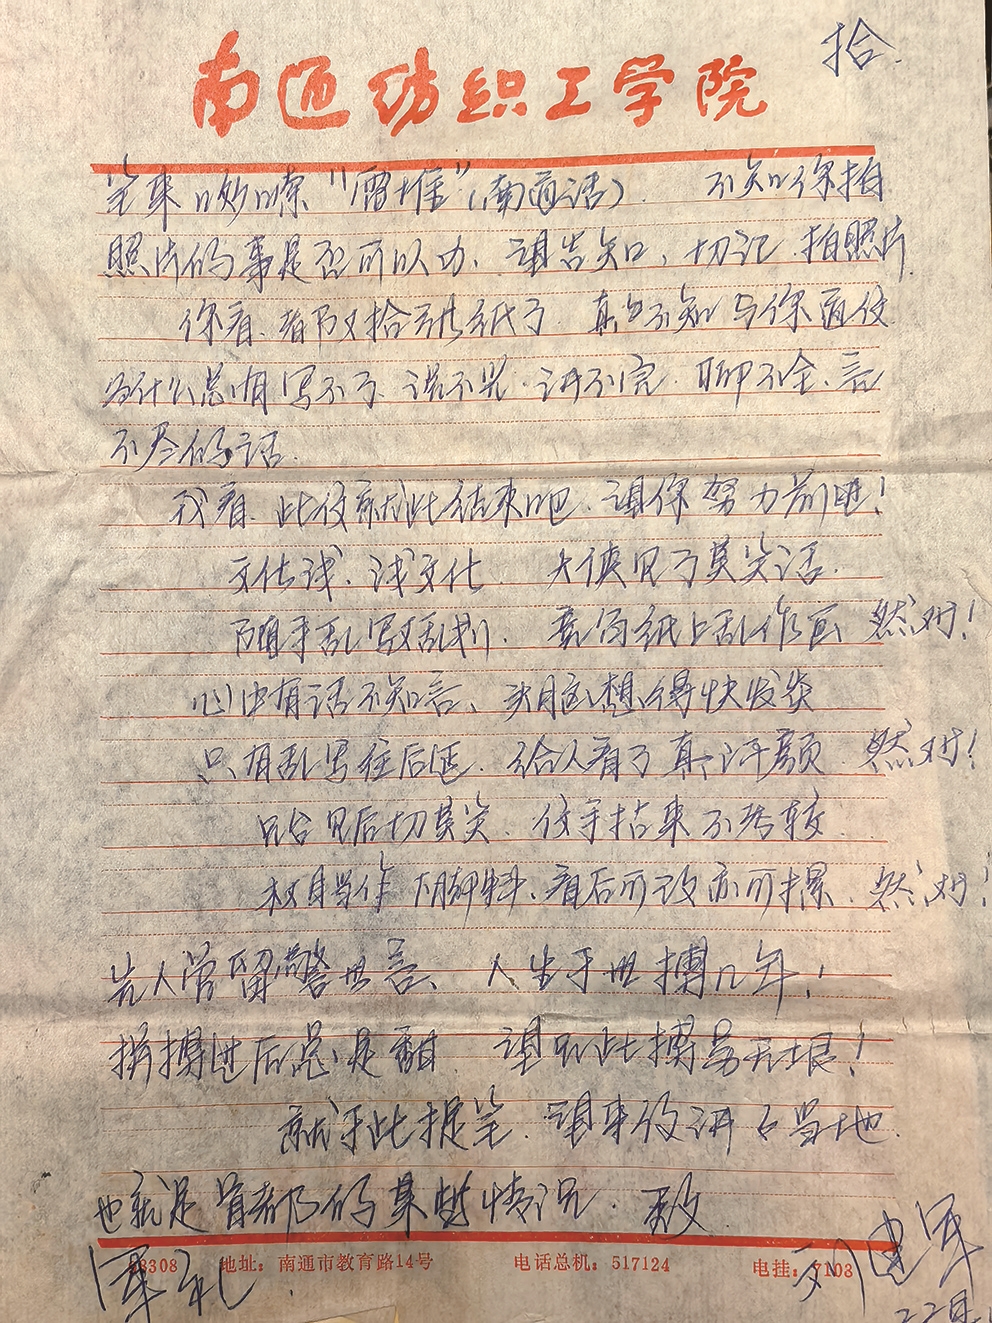 拾.
南通纺织工学院
笔来 "雷堆"(南通话). 不知你拍
照片的事是否可以办、请告知、切记 拍照片.
你看、都又拾张纸了 真不知与你通信
为什么总有写不了、说不光、讲不完、聊不全、言
不尽的话.
我看、此信就此结束吧、请你努力前进!
文化浅、浅文化 大侠见了莫笑话.
随手乱写又乱划、竟向纸上乱作画 然对!
心中有话不知言、想得快发炎
只有乱写往后延、给人看了真汗颜 然对!
见后切莫笑、信手拈来不
权且当作下脚料、看后可改亦可撂 然对!
先人常留警世言、人生于世搏几年!
拼搏过后总是甜 请君此搏寻无垠!
就于此提笔、请来信讲一下当地.
也就是首都的某些情况. 致
军礼. 刘建军
地址:南通市教育路14号 电话总机:517124 电挂:7103